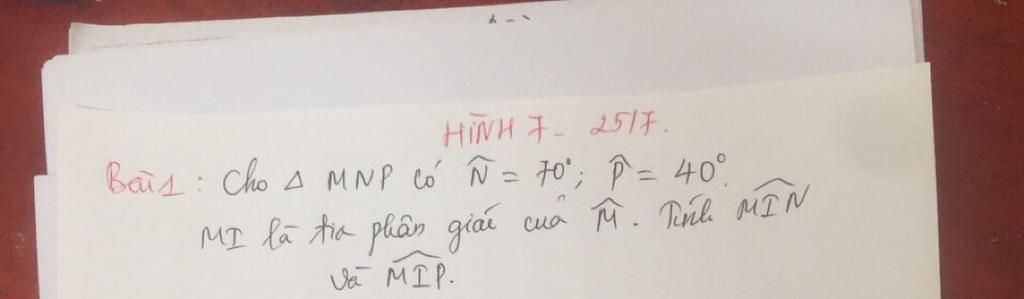 HÌNH 7 - 25/7.
Bài 1 : Cho Δ MNP có N̂ = 70°; P̂ = 40°.
MI là tia phân giác của M̂. Tính M͡IN
và M͡IP.